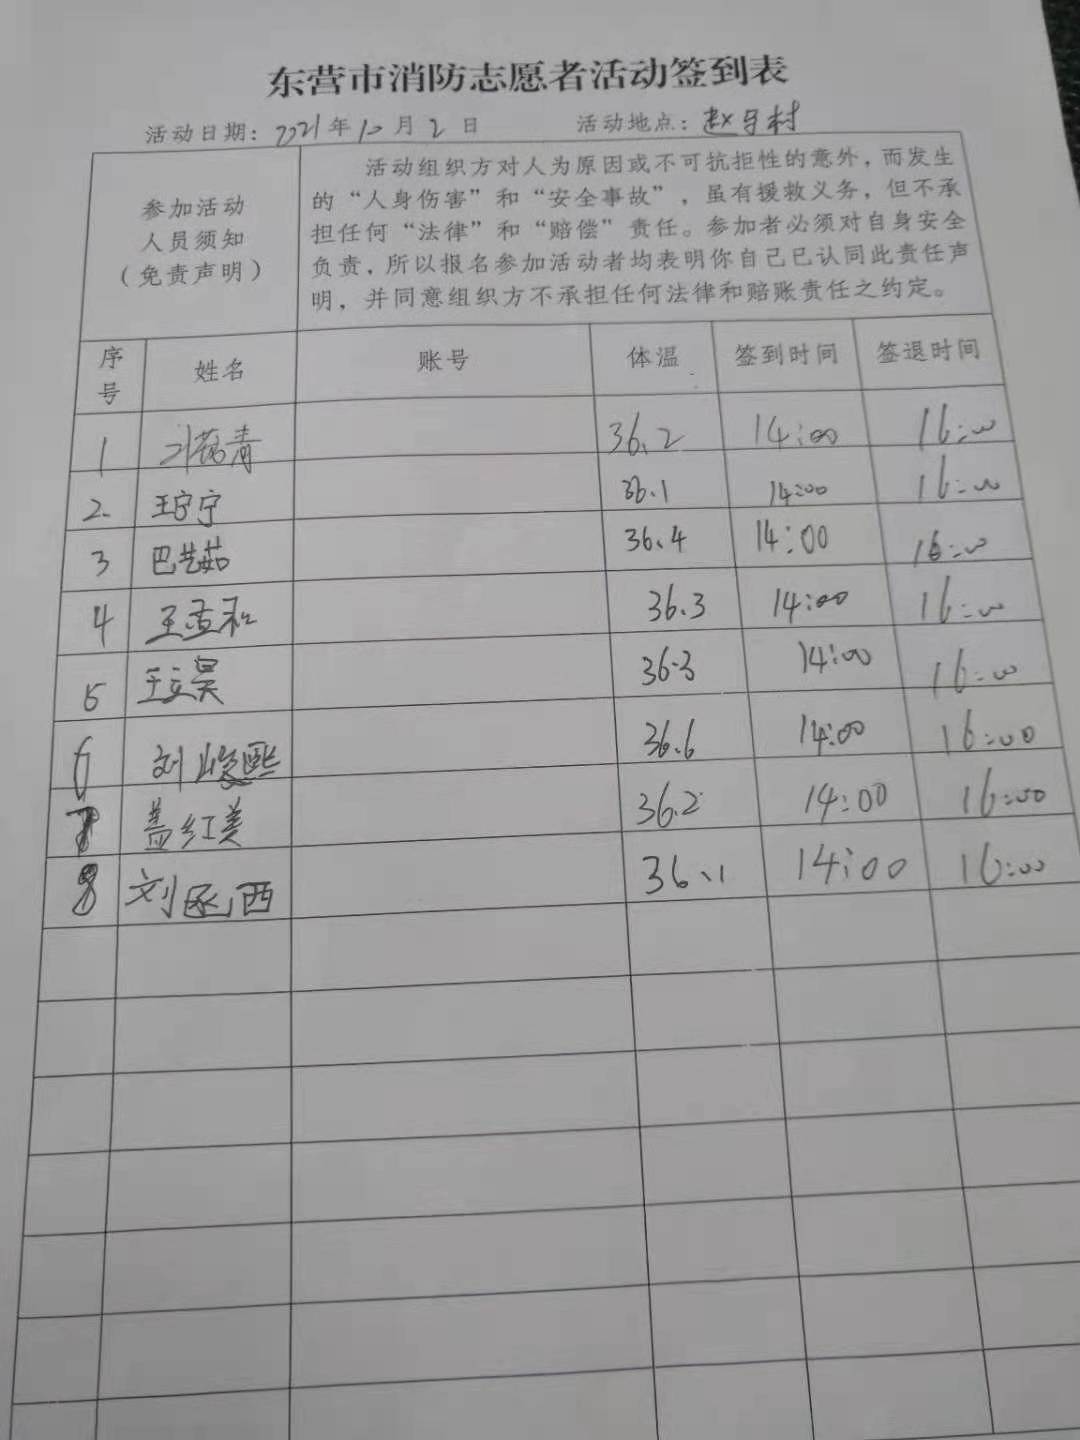 东营市消防志愿者活动签到表
活动日期：2021年10月2日 活动地点：赵马村
参加活动
人员须知
（免责声明）
活动组织方对人为原因或不可抗拒性的意外，而发生
的“人身伤害”和“安全事故”，虽有援救义务，但不承
担任何“法律”和“赔偿”责任。参加者必须对自身安全
负责，所以报名参加活动者均表明你自己已认同此责任声
明，并同意组织方不承担任何法律和赔账责任之约定。
序号 姓名 账号 体温 签到时间 签退时间
1 36.2 14:00 16:00
2. 王宁宁 36.1 14:00 16:00
3 巴艺茹 36.4 14:00 16:00
4 36.3 14:00 16:00
5 王立昊 36.3 14:00 16:00
6 刘峻熙 36.6 14:00 16:00
7 盖红美 36.2 14:00 16:00
8 刘 西 36.1 14:00 16:00